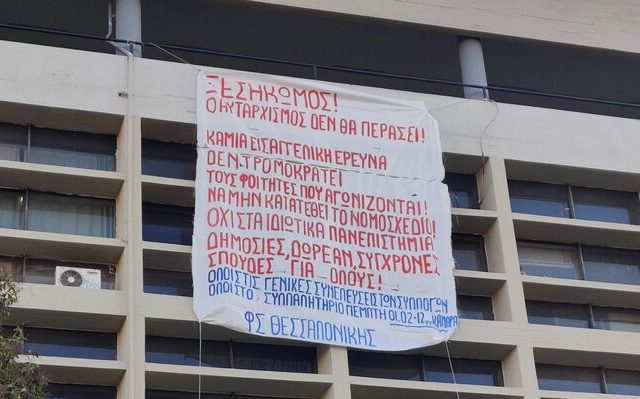 ΞΕΣΗΚΩΜΟΣ!
Ο ΑΥΤΑΡΧΙΣΜΟΣ ΔΕΝ ΘΑ ΠΕΡΑΣΕΙ!
ΚΑΜΙΑ ΕΙΣΑΓΓΕΛΙΚΗ ΕΡΕΥΝΑ
ΔΕΝ ΤΡΟΜΟΚΡΑΤΕΙ
ΤΟΥΣ ΦΟΙΤΗΤΕΣ ΠΟΥ ΑΓΩΝΙΖΟΝΤΑΙ!
ΝΑ ΜΗΝ ΚΑΤΑΤΕΘΕΙ ΤΟ ΝΟΜΟΣΧΕΔΙΟ!
ΟΧΙ ΣΤΑ ΙΔΙΩΤΙΚΑ ΠΑΝΕΠΙΣΤΗΜΙΑ
ΔΗΜΟΣΙΕΣ, ΔΩΡΕΑΝ, ΣΥΓΧΡΟΝΕΣ
ΣΠΟΥΔΕΣ ΓΙΑ ΟΛΟΥΣ!
ΟΛΟΙ ΣΤΙΣ ΓΕΝΙΚΕΣ ΣΥΝΕΛΕΥΣΕΙΣ ΤΩΝ ΣΥΛΛΟΓΩΝ
ΟΛΟΙ ΣΤΟ ΣΥΛΛΑΛΗΤΗΡΙΟ ΠΕΜΠΤΗ 01.02-12 ΚΑΜΑΡΑ
ΦΣ ΘΕΣΣΑΛΟΝΙΚΗΣ